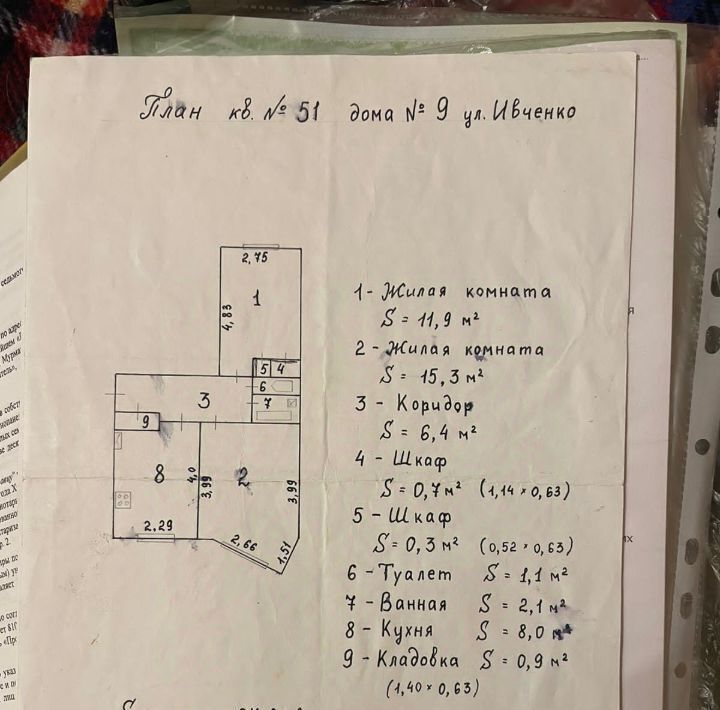 План кв. № 51 дома № 9 ул. Ивченко
2,75
1
4,83
5 4
6
3
7
9
8
4,0
3,99
2
3,99
2,29
2,66
1,51
1 - Жилая комната
S = 11,9 м²
2 - Жилая комната
S = 15,3 м²
3 - Коридор
S = 6,4 м²
4 - Шкаф
S = 0,7 м² (1,14 × 0,63)
5 - Шкаф
S = 0,3 м² (0,52 × 0,63)
6 - Туалет S = 1,1 м²
7 - Ванная S = 2,1 м²
8 - Кухня S = 8,0 м²
9 - Кладовка S = 0,9 м²
(1,40 × 0,63)